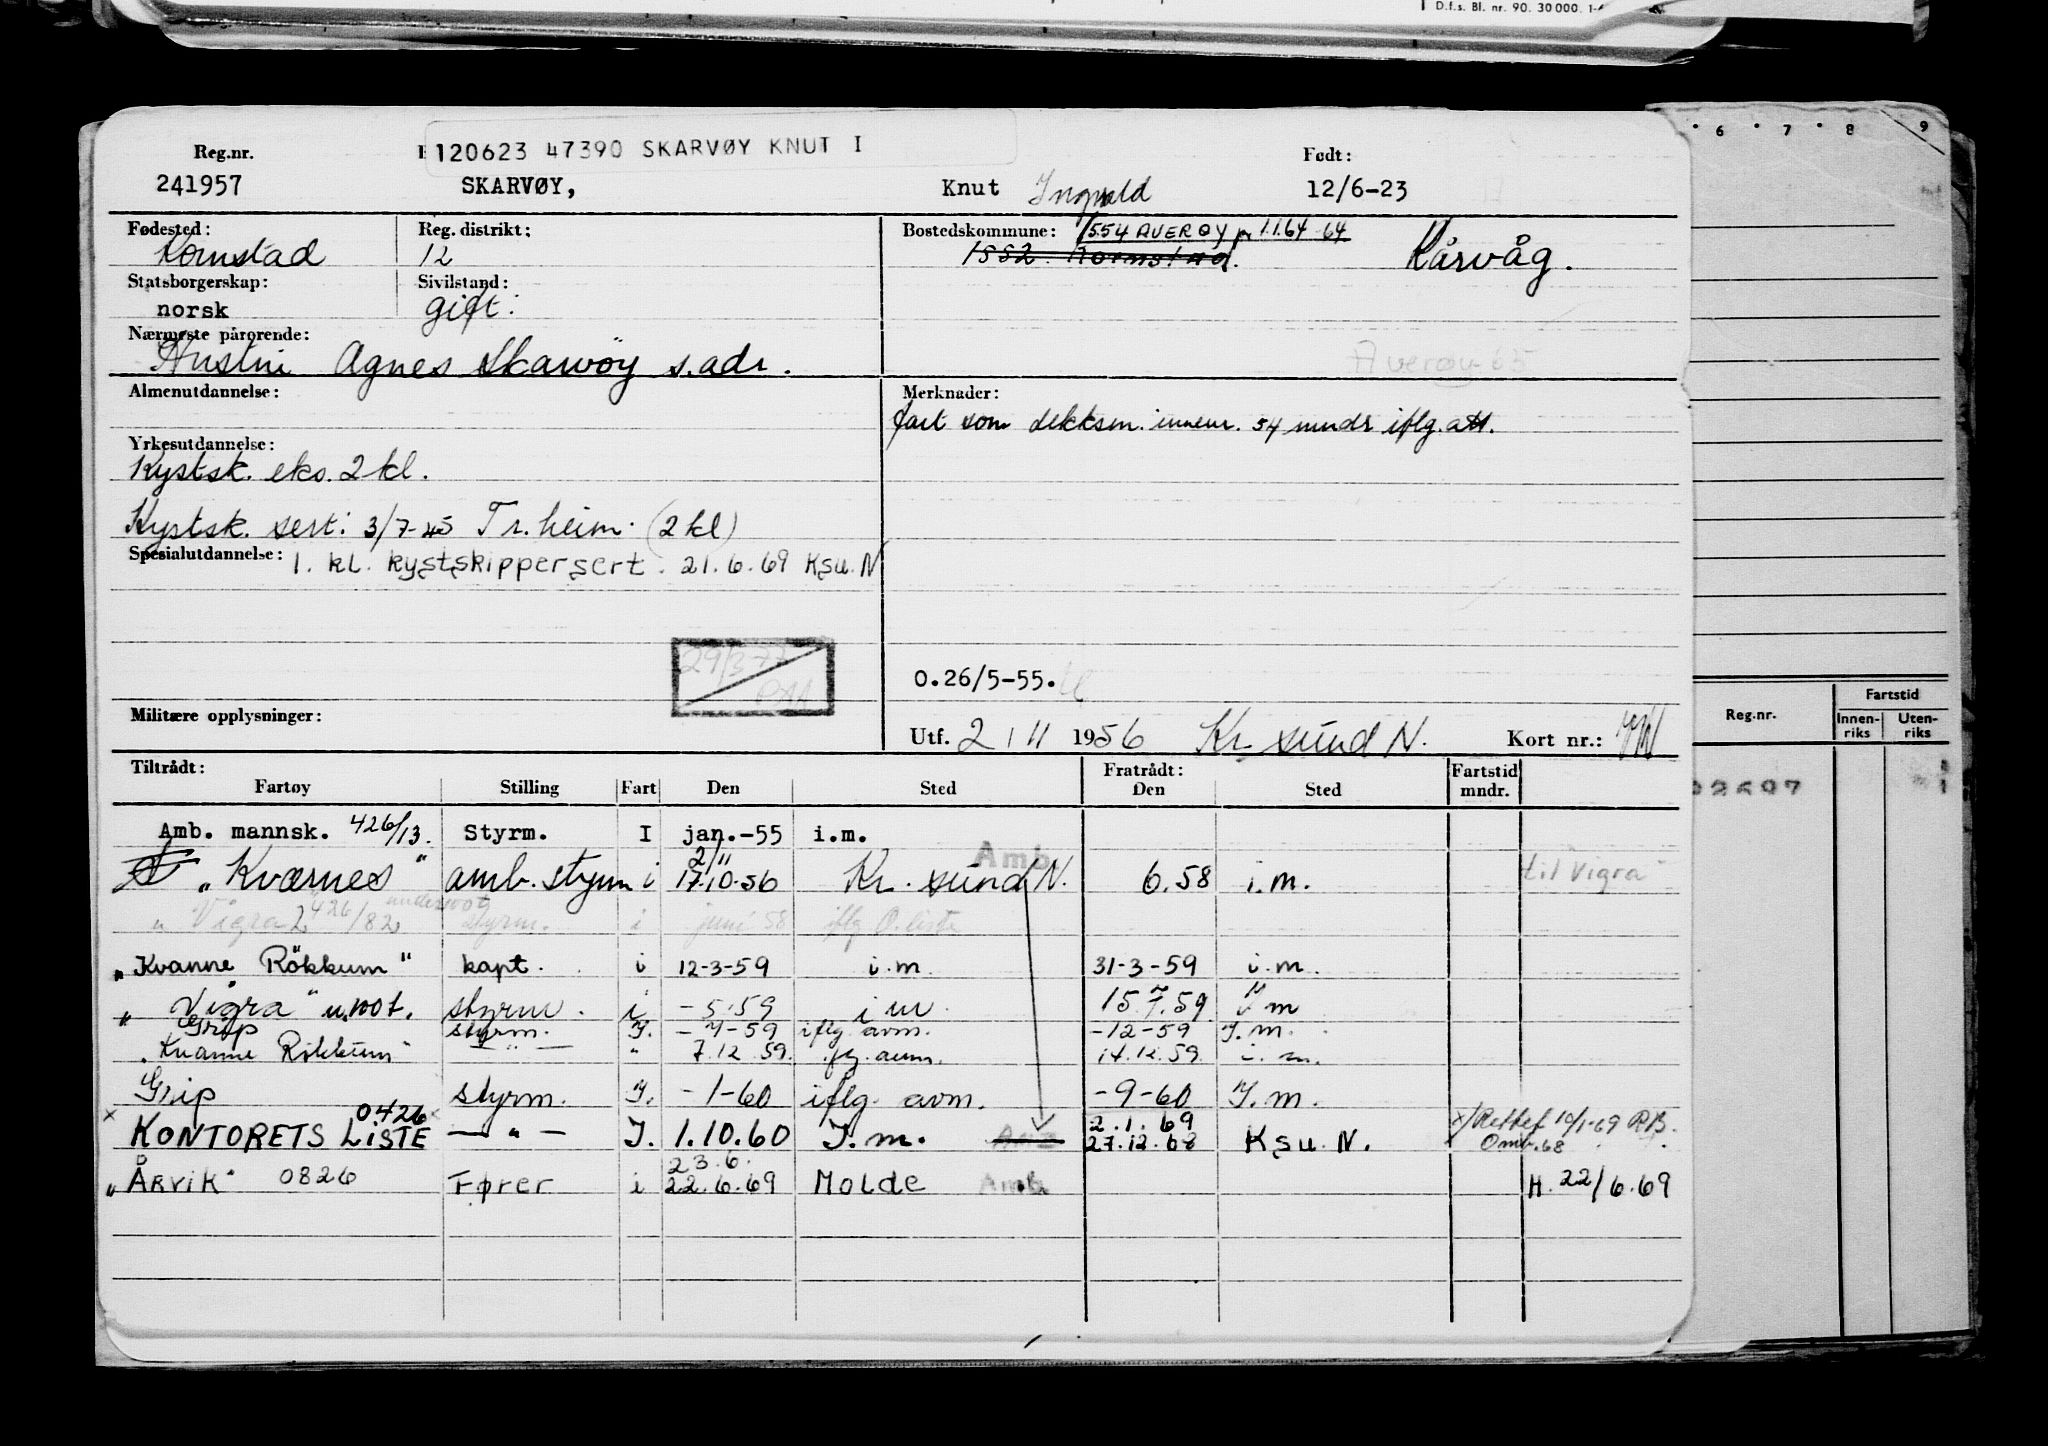 D.f.s. Bl. nr. 90. 30 000. 1-
6 7 8 9
Reg.nr. 120623 47390 SKARVØY KNUT I Født:
241957 SKARVØY, Knut Ingvald 12/6-23
Fødested: Reg. distrikt: Bostedskommune: 1554 AVERØY 1.1.64 64
Kornstad 12 1552 Kornstad. Kårvåg.
Statsborgerskap: Sivilstand:
norsk gift.
Nærmeste pårørende:
Hustru Agnes Skarvøy s.adr. Averøy 65
Almenutdannelse: Merknader:
fart som dekksm. innenr. 54 mndr iflg. att.
Yrkesutdannelse:
Kystsk. eks. 2 kl.
Kystsk. sert: 3/7-45 Tr.heim. (2 kl)
Spesialutdannelse: 1. kl. kystskippersert. 21.6.69 Ksu. N
29/3-77
0.26/5-55.
Militære opplysninger: Utf. 2/11 1956 Kr. sund N. Kort nr.:
Reg.nr. Fartstid
Innen-riks Uten-riks
Tiltrådt: Fratrådt: Fartstid
Fartøy Stilling Fart Den Sted Den Sted mndr.
Amb. mannsk. 426/13. Styrm. I jan.-55 i.m.
2/11 Amb.
"Kværnes" amb. styrm i 17.10.56 Kr. sund N. 6.58 i.m. til Vigra
" Vigra 2 426/82 styrm. i juni 58 iflg O. liste
"Kvanne Rökkum" kapt. i 12-3-59 i.m. 31-3-59 i.m.
" Vigra" styrm. i -5.59 i m 15.7.59 i m
Grip styrm. I. -7-59 iflg. avm. -12-59 I.m.
"Kvanne Rökkum" — " — " 7.12.59. iflg. avm. 14.12.59. i.m.
Grip styrm. I. -1-60 iflg. avm. -9-60 I.m.
0426 2.1.69 x/ Rettet 10/1-69 RB.
x KONTORETS LISTE — " — I. 1.10.60 I.m. 27.12.68 Ksu. N. Omb.68
23.6.
"ÅRVIK" 0826 Fører i 22.6.69 MOLDE Amb. H. 22/6.69